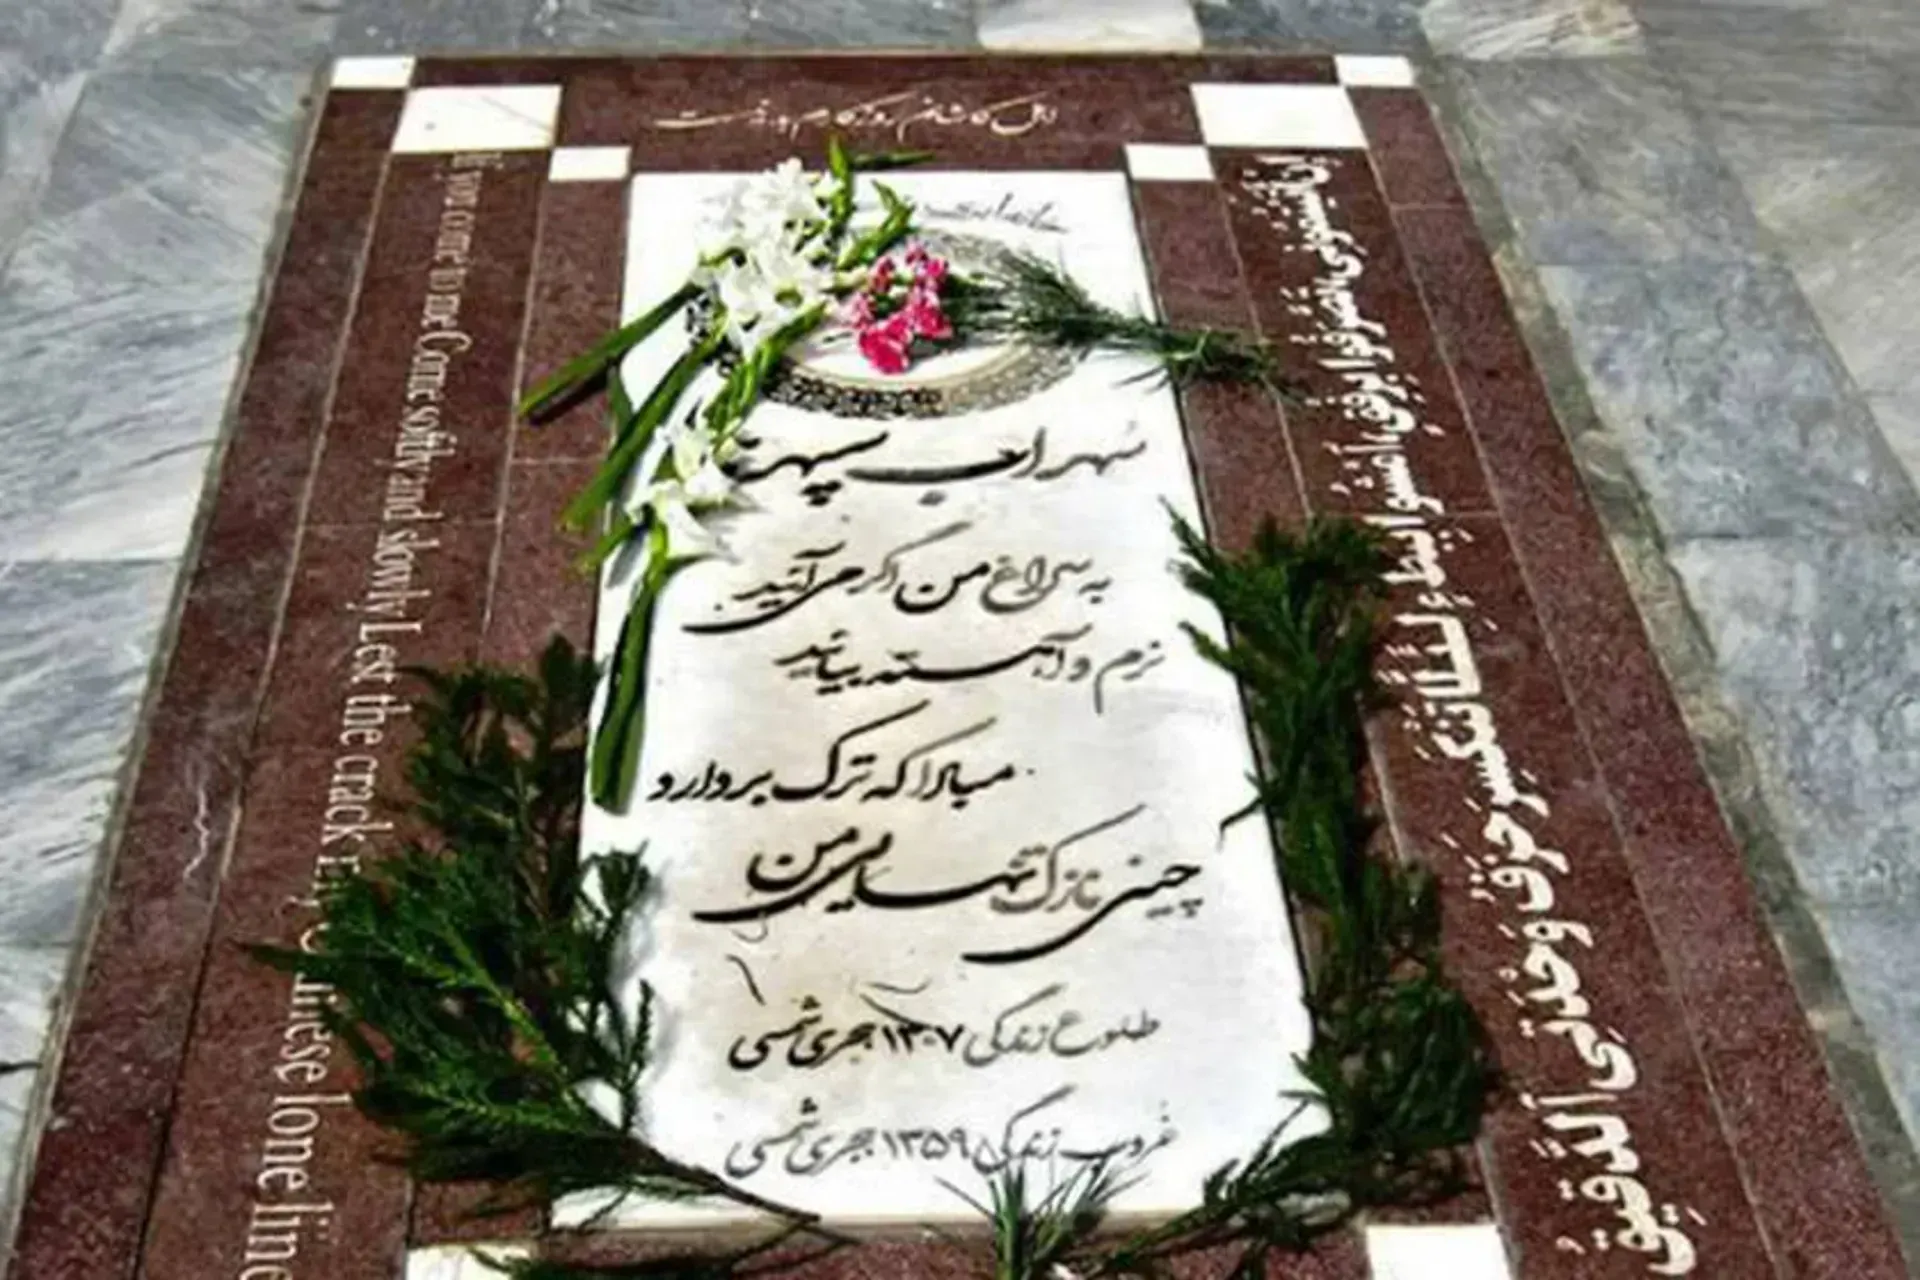 اهل کاشانم روزگارم بد نیست
سهراب سپهری
به سراغ من اگر می آئید
نرم و آهسته بیائید
مبادا که ترک بردارد
چینی نازک تنهایی من
طلوع زندگی ۱۳۰۷ هجری شمسی
غروب زندگی ۱۳۵۹ هجری شمسی
If you come to me Come softly and slowly Lest the crack
these lone line
لِئَلَّا تَنْكَسِرَ خَزَفُ وَحْدَتِی الدَّقِیقُ